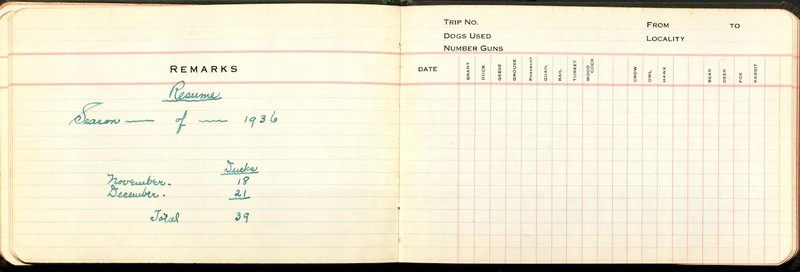 REMARKS
Resume
Season — of — 1936
Ducks
November. 18
December. 21
Total 39
TRIP NO. FROM TO
DOGS USED LOCALITY
NUMBER GUNS
DATE BRANT DUCK GEESE GROUSE PHEASANT QUAIL RAIL TURKEY WOOD COCK CROW OWL HAWK BEAR DEER FOX RABBIT